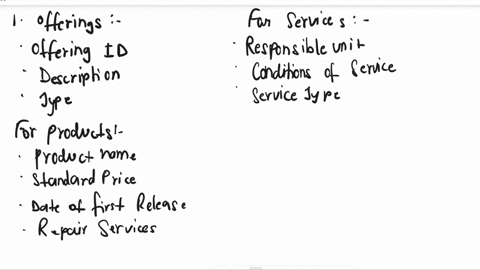 1. Offerings :-
· Offering ID
· Description
· Type
For Products:-
· Product name
· Standard Price
· Date of first Release
· Repair Services
For Services :-
· Responsible unit
· Conditions of Service
· Service Type